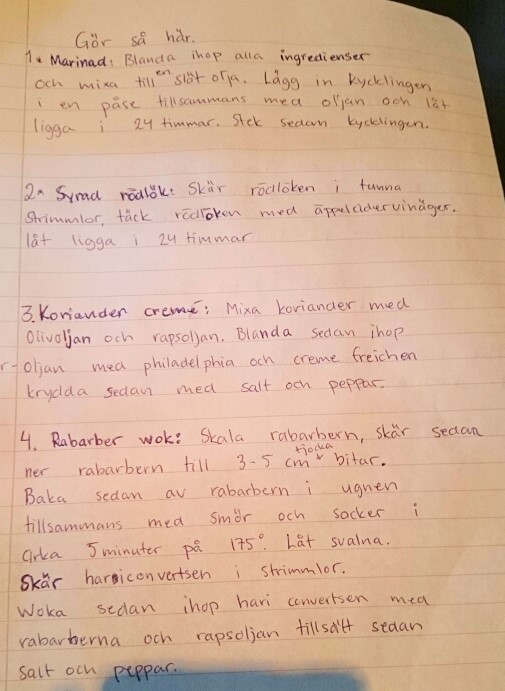 Gör så här.
1. Marinad: Blanda ihop alla ingredienser
och mixa till en slät olja. Lägg in kycklingen
i en påse tillsammans med oljan och låt
ligga i 24 timmar. Stek sedan kycklingen.
2. Syrad rödlök: Skär rödlöken i tunna
Strimmlor, täck rödlöken med äppelcidervinäger.
låt ligga i 24 timmar
3. Koriander cremé: Mixa koriander med
Olivoljan och rapsoljan. Blanda sedan ihop
r- Oljan med philadelphia och creme freichen
krydda sedan med salt och peppar.
4. Rabarber wok: Skala rabarbern, skär sedan
ner rabarbern till 3-5 cm tjocka bitar.
Baka sedan av rabarbern i ugnen
tillsammans med smör och socker i
cirka 5 minuter på 175°. Låt svalna.
Skär hariconvertsen i strimmlor.
Woka sedan ihop hari convertsen med
rabarberna och rapsoljan tillsätt sedan
salt och peppar.